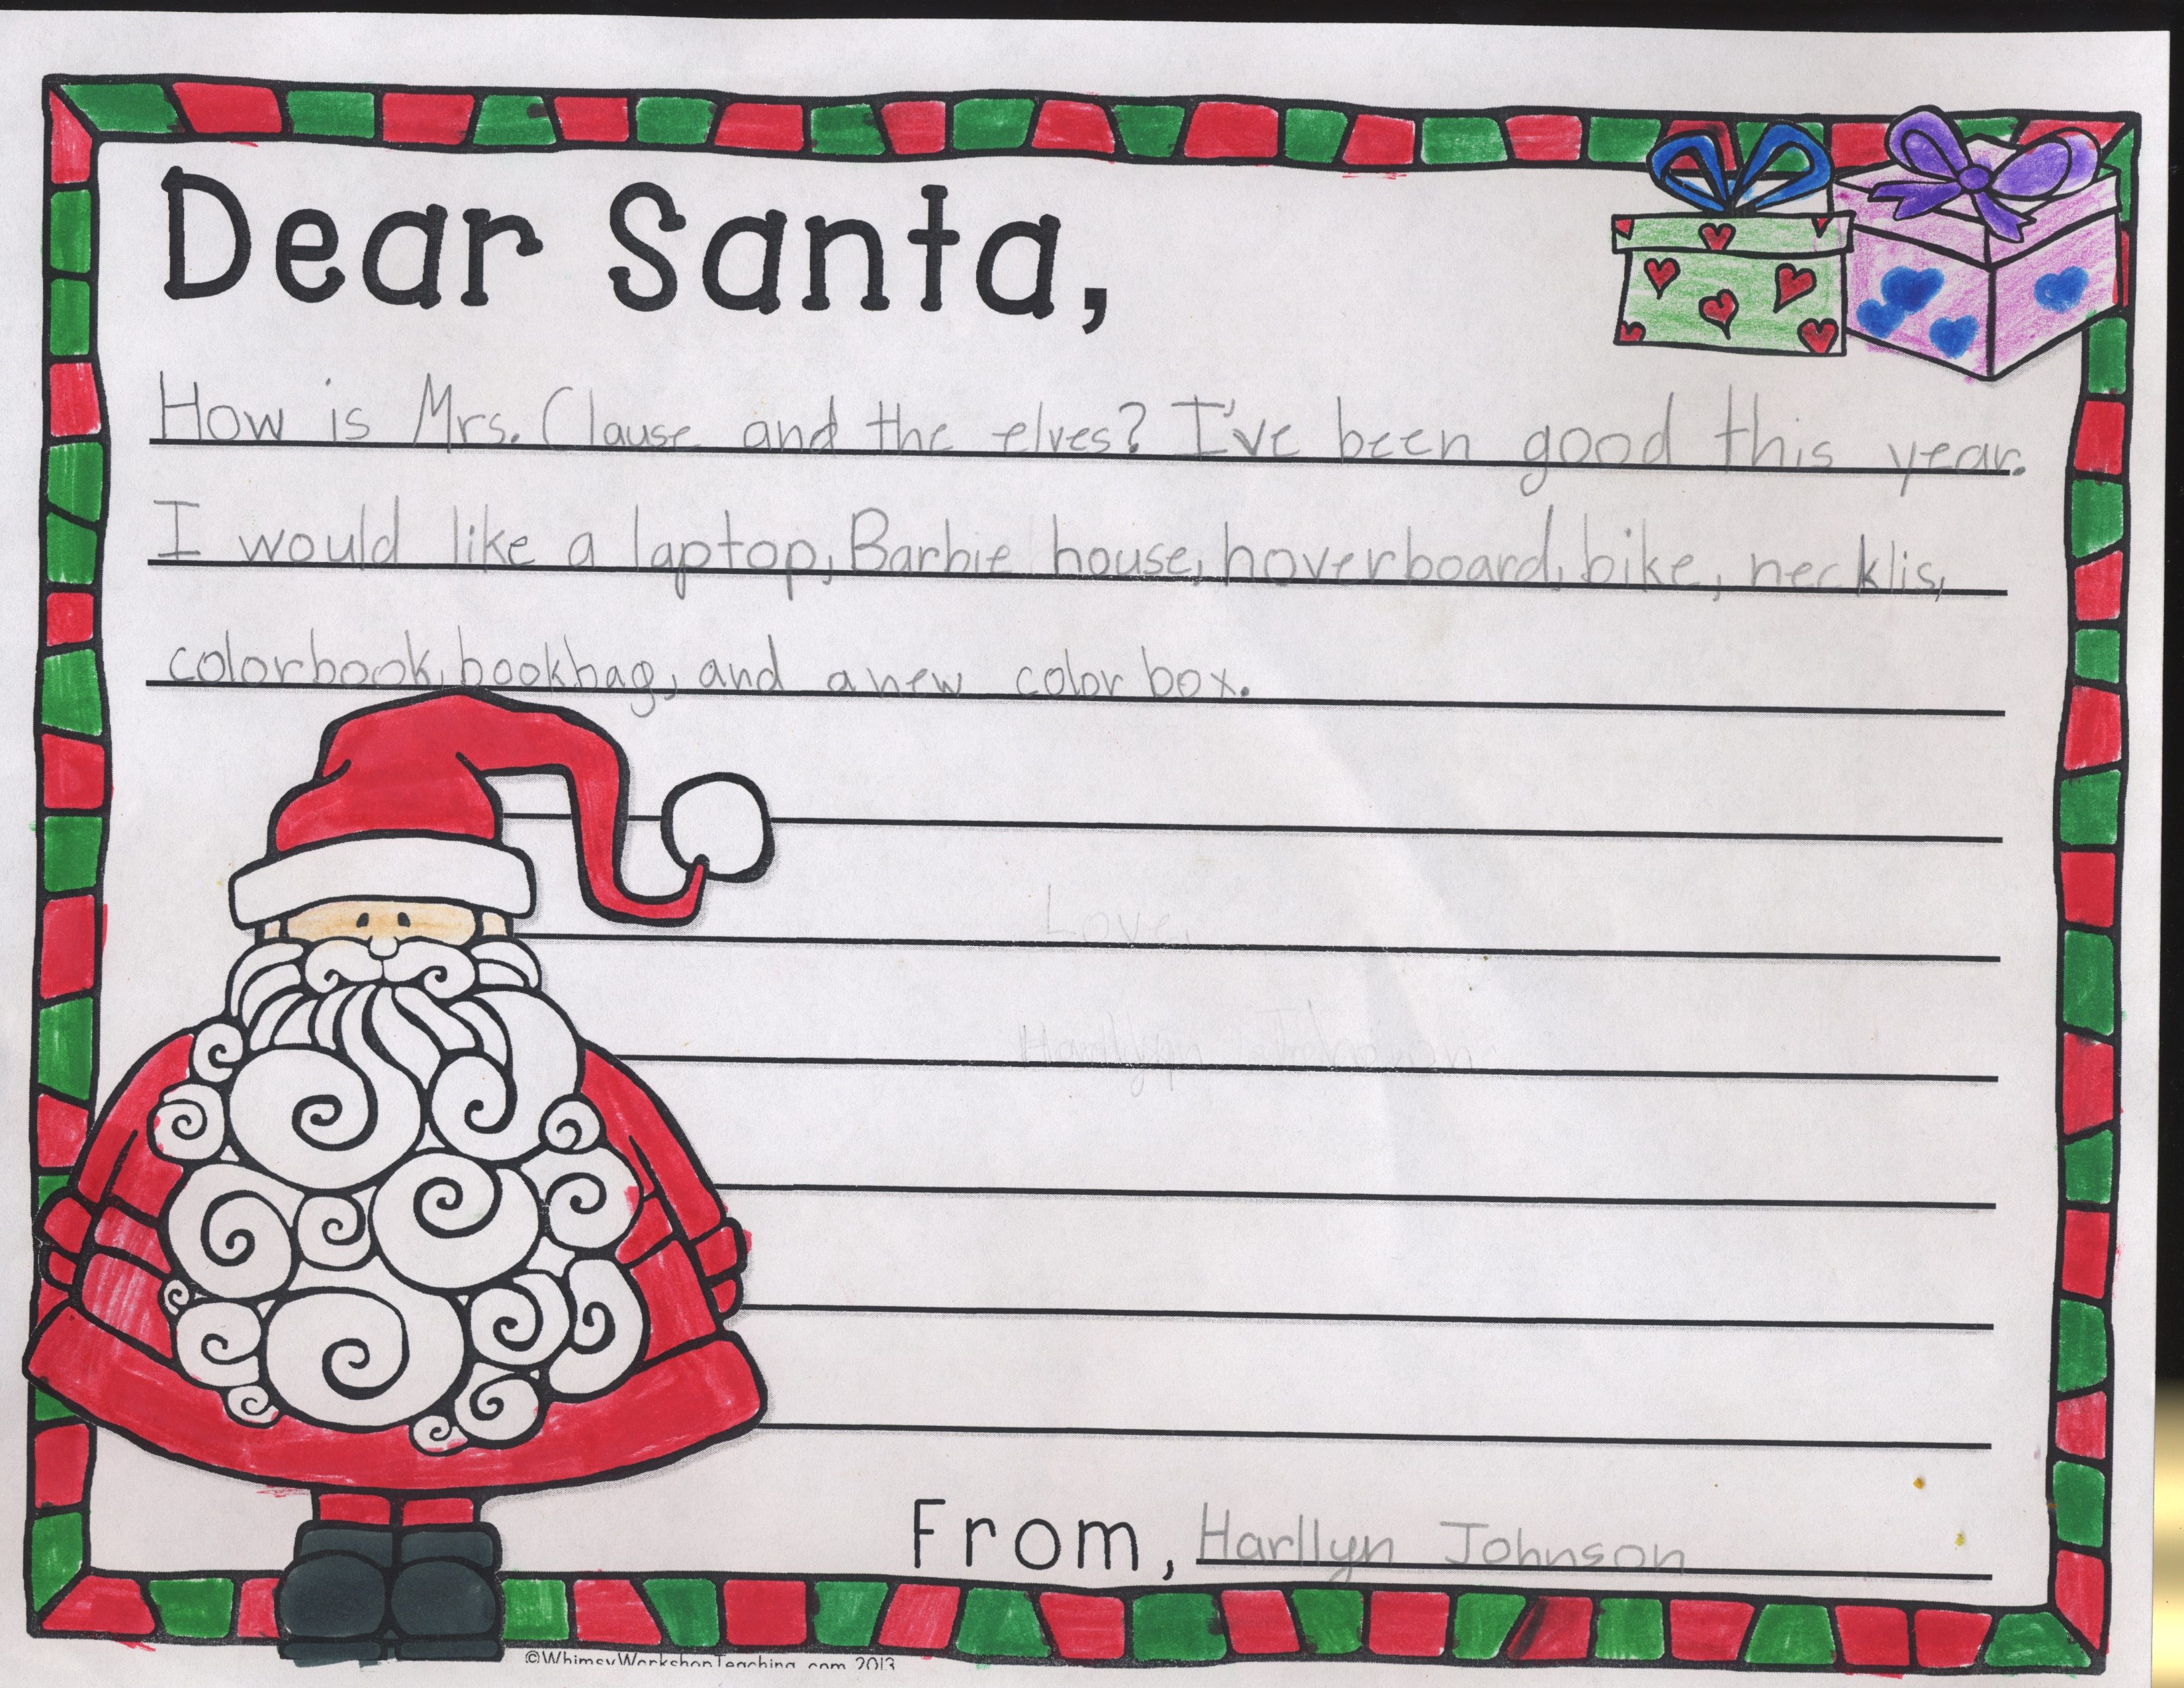 Dear Santa,
How is Mrs. Clause and the elves? I've been good this year.
I would like a laptop, Barbie house, hoverboard, bike, necklis,
colorbook, bookbag, and a new color box.
Love,
Harllyn Johnson
From, Harllyn Johnson
©WhimsyWorkshopTeaching.com 2013